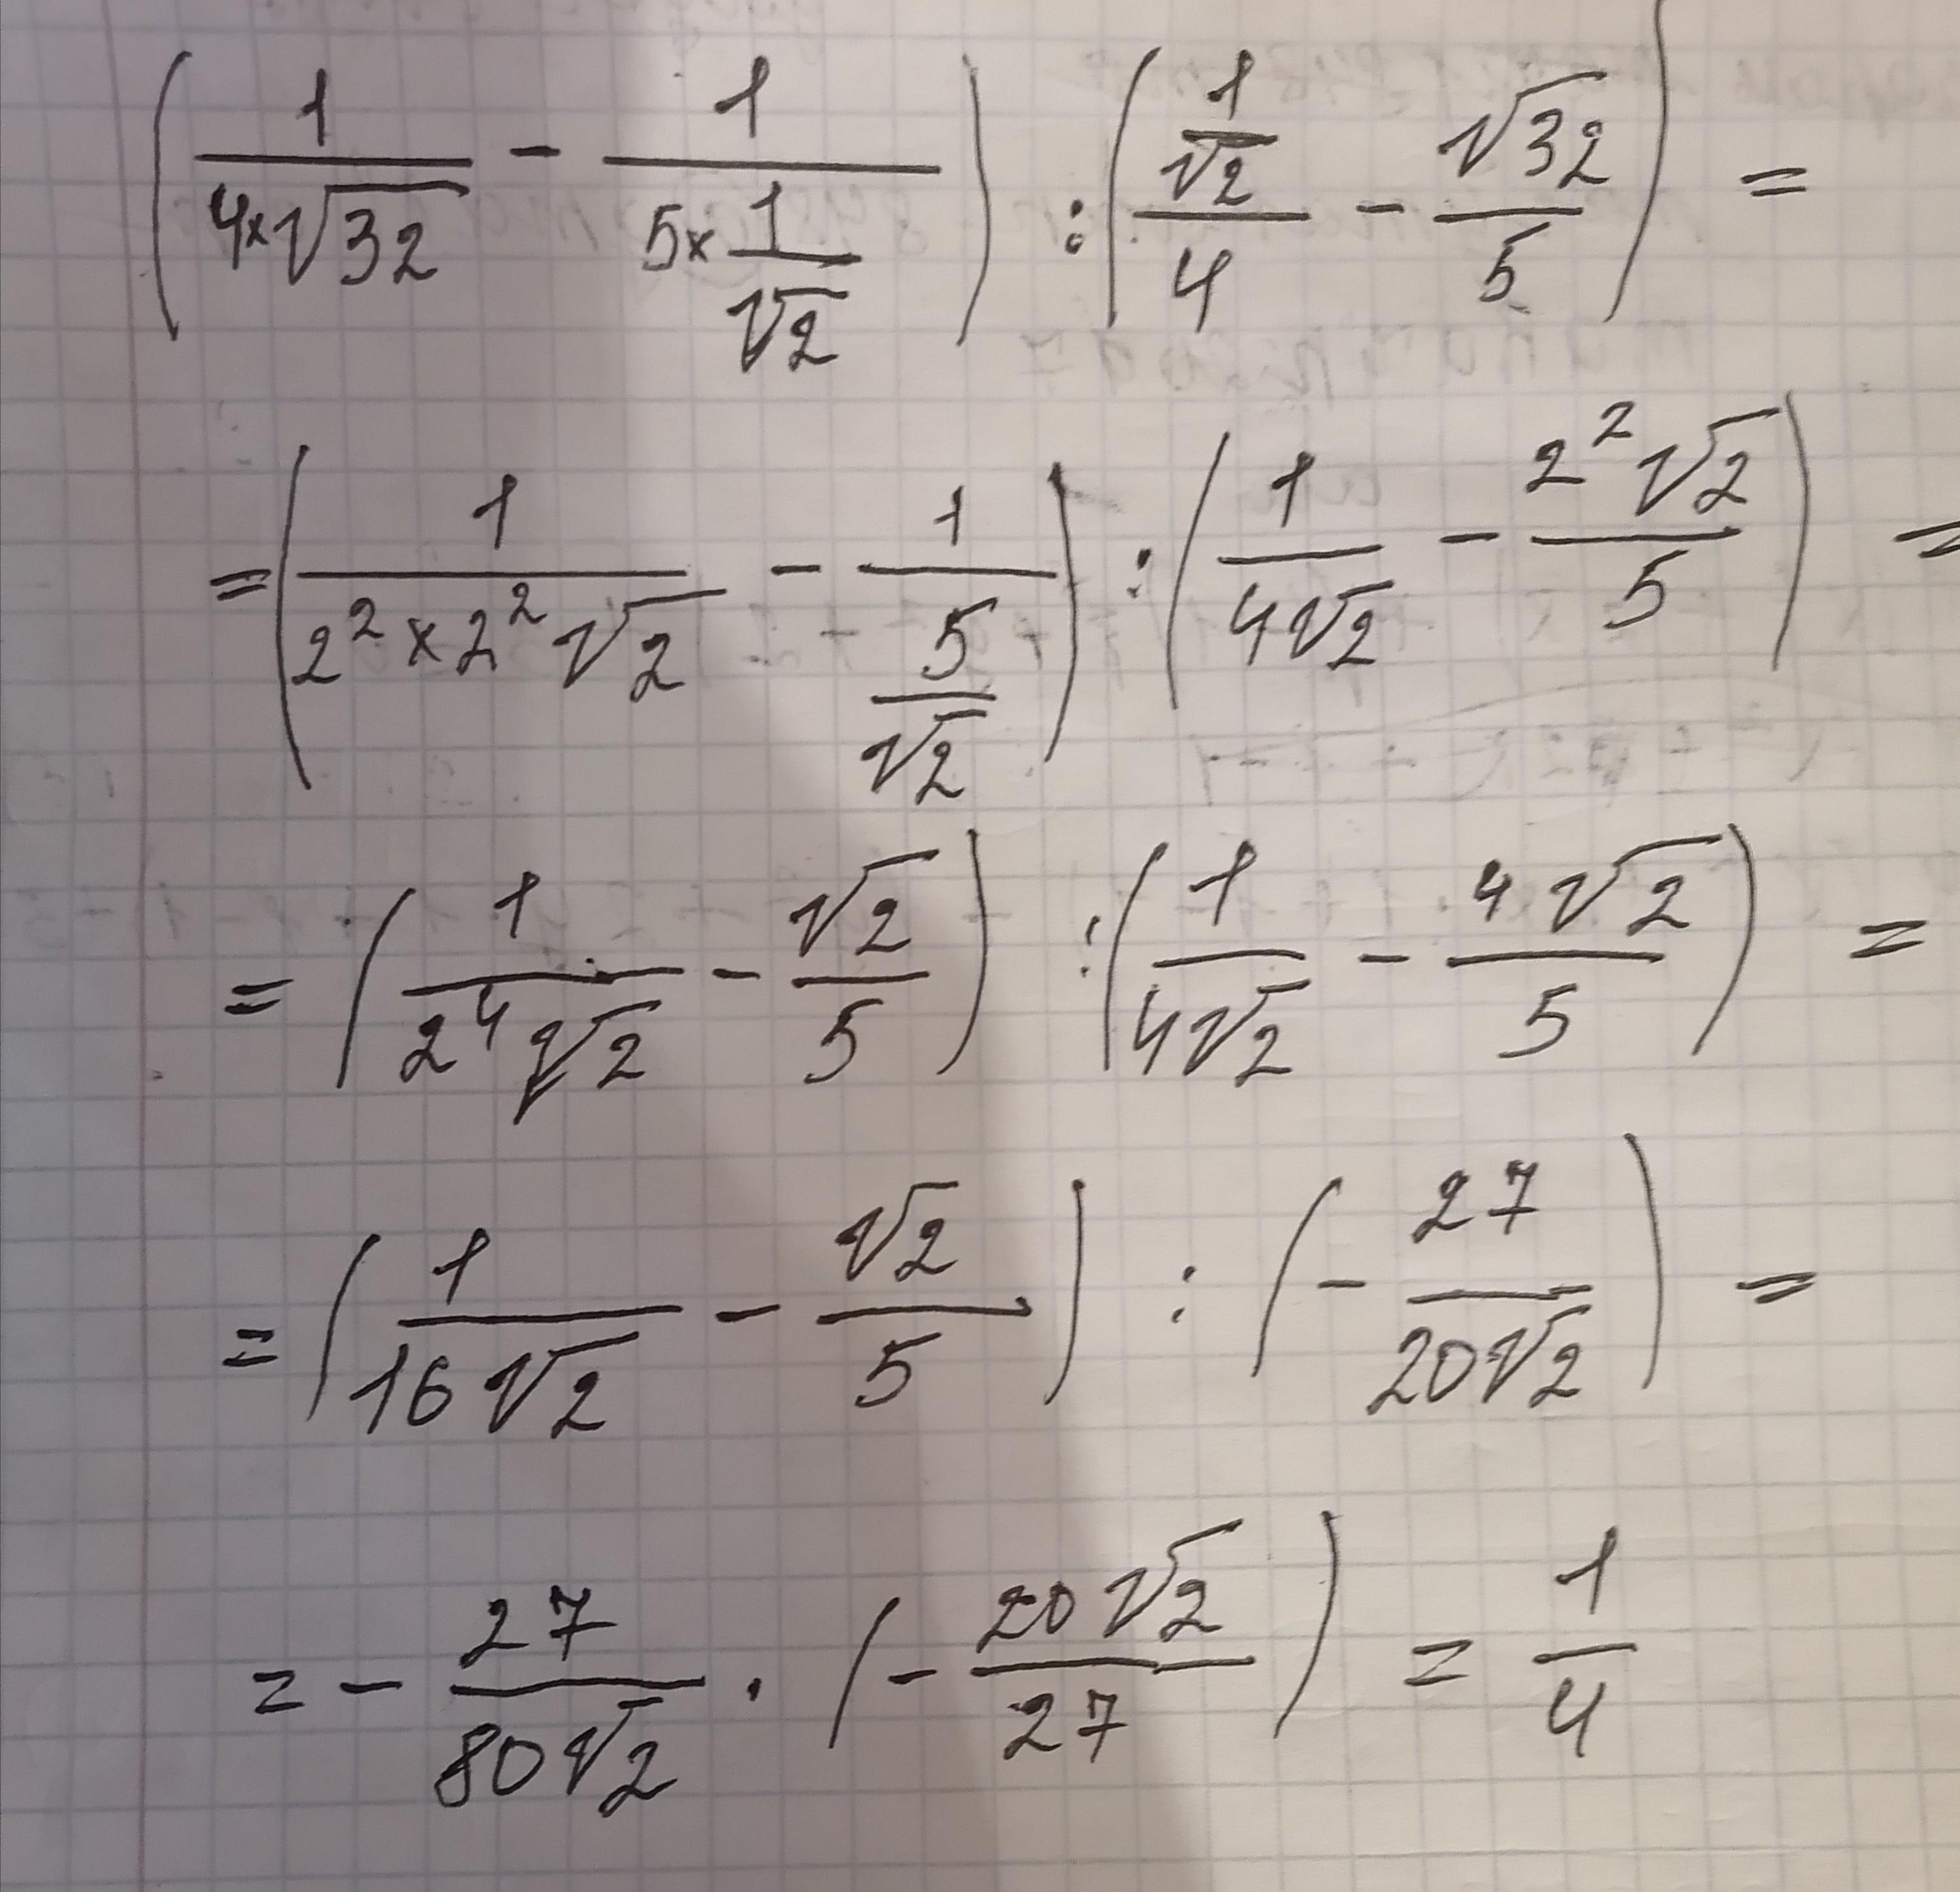 (1/(4×√32) − 1/(5×1/√2)) : ((1/√2)/4 − √32/5) =
= (1/(2²×2²√2) − 1/(5/√2)) : (1/(4√2) − 2²√2/5) =
= (1/(2⁴√2) − √2/5) : (1/(4√2) − 4√2/5) =
= (1/(16√2) − √2/5) : (− 27/(20√2)) =
= − 27/(80√2) · (− 20√2/27) = 1/4